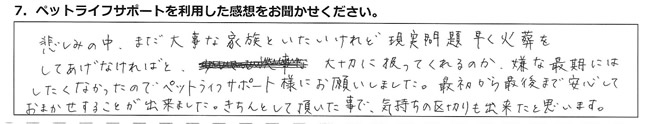 7. ペットライフサポートを利用した感想をお聞かせください。
悲しみの中、まだ大事な家族といたいけれど現実問題早く火葬を
してあげなければと、大切に扱ってくれるのか、嫌な最期には
したくなかったのでペットライフサポート様にお願いしました。最初から最後まで安心して
おまかせすることが出来ました。きちんとして頂いた事で、気持ちの区切りも出来たと思います。